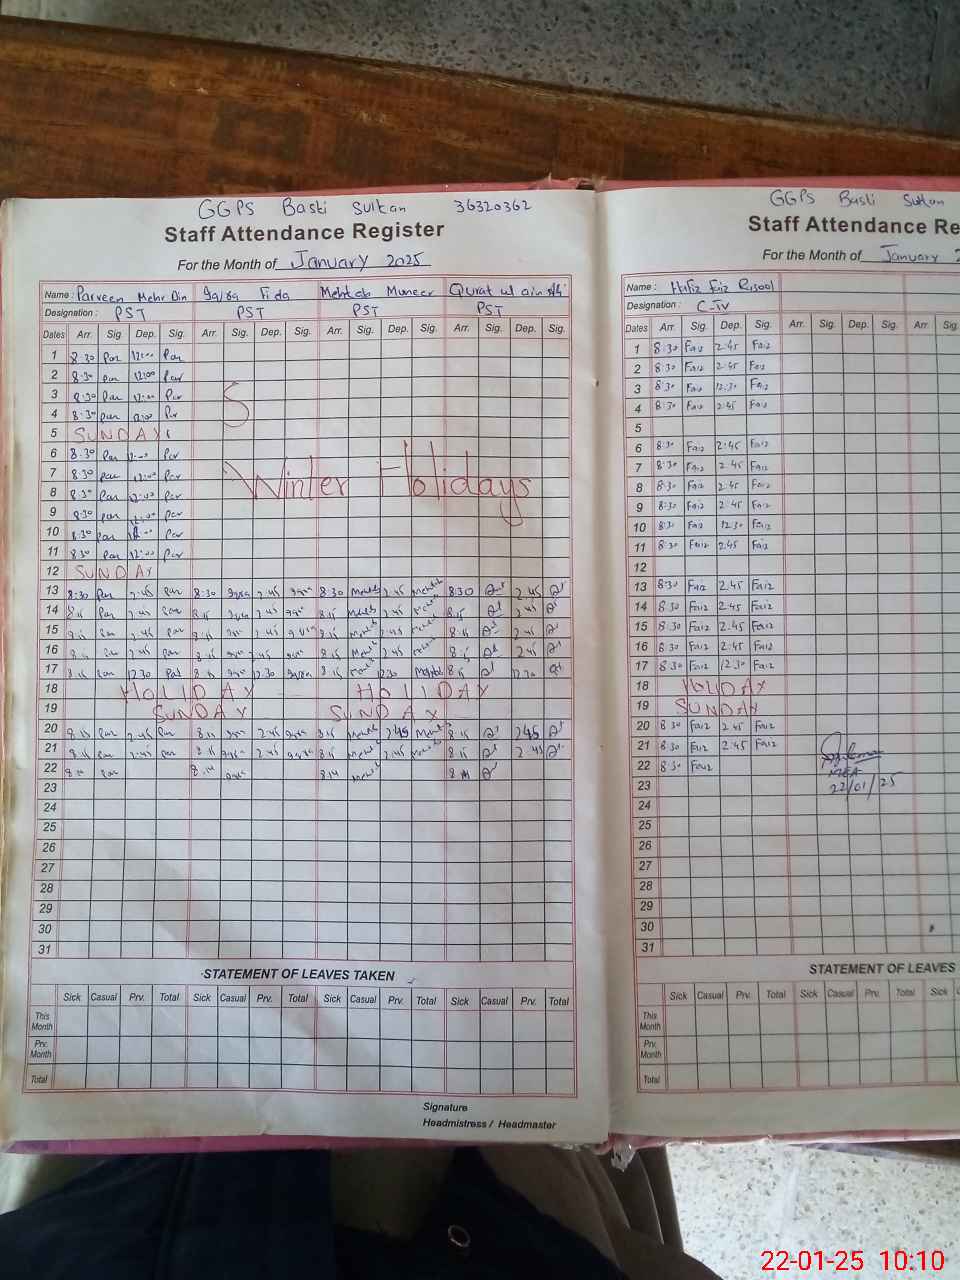 GGPS Basti Sultan 36320362
Staff Attendance Register
For the Month of January 2025
Name : Parveen Mehr Din Iqra Fida Mehtab Muneer Qurat ul ain Ali
Designation : PST PST PST PST
Dates Arr. Sig. Dep. Sig. Arr. Sig. Dep. Sig. Arr. Sig. Dep. Sig. Arr. Sig. Dep. Sig.
1 8:30 Par 12:00 Par
2 8:30 Par 12:00 Par
3 8:30 Par 12:00 Par
4 8:30 Par 12:00 Par
5 SUNDAY
6 8:30 Par Par
7 8:30 Par 12:00 Par
Winter Holidays
8 8:30 Par 12:00 Par
9 8:30 Par 12:00 Par
10 8:30 Par Par
11 8:30 Par 12:00 Par
12 SUNDAY
13 8:30 Par 2:45 Par 8:30 2:45 8:30 2:45 8:30 2:45
14 8:15 Par 2:45 Par 8:15 2:45 8:15 2:45 8:15 2:45
15 8:15 Par 2:45 Par 8:15 2:45 8:15 2:45 8:15 2:45
16 8:15 Par 2:45 Par 8:15 2:45 8:15 2:45 8:15 2:45
17 8:15 Par 12:30 Par 8:15 12:30 8:15 12:30 8:15 12:30
18 HOLIDAY HOLIDAY
19 SUNDAY SUNDAY
20 8:15 Par 2:45 Par 8:15 2:45 8:15 2:45 8:15 2:45
21 8:15 Par 2:45 Par 8:15 2:45 8:15 2:45 8:15 2:45
22 Par 8:14 8:14
23
24
25
26
27
28
29
30
31
STATEMENT OF LEAVES TAKEN
Sick Casual Prv. Total Sick Casual Prv. Total Sick Casual Prv. Total Sick Casual Prv. Total
This Month
Prv. Month
Total
Signature
Headmistress / Headmaster
GGPS Basti Sultan
Staff Attendance Re
For the Month of January 2
Name : Hafiz Faiz Rasool
Designation : C-IV
Dates Arr. Sig. Dep. Sig. Arr. Sig. Dep. Sig. Arr. Sig.
1 8:30 Faiz 2:45 Faiz
2 8:30 Faiz 2:45 Faiz
3 8:30 Faiz 12:30 Faiz
4 8:30 Faiz 2:45 Faiz
5
6 8:30 Faiz 2:45 Faiz
7 8:30 Faiz 2:45 Faiz
8 8:30 Faiz 2:45 Faiz
9 8:30 Faiz 2:45 Faiz
10 8:30 Faiz 12:30 Faiz
11 8:30 Faiz 2:45 Faiz
12
13 8:30 Faiz 2:45 Faiz
14 8:30 Faiz 2:45 Faiz
15 8:30 Faiz 2:45 Faiz
16 8:30 Faiz 2:45 Faiz
17 8:30 Faiz 12:30 Faiz
18 HOLIDAY
19 SUNDAY
20 8:30 Faiz 2:45 Faiz
21 8:30 Faiz 2:45 Faiz
22 8:30 Faiz MEA
23 22/01/25
24
25
26
27
28
29
30
31
STATEMENT OF LEAVES
Sick Casual Prv. Total Sick Casual Prv. Total Sick C
This Month
Prv. Month
Total
22-01-25 10:10